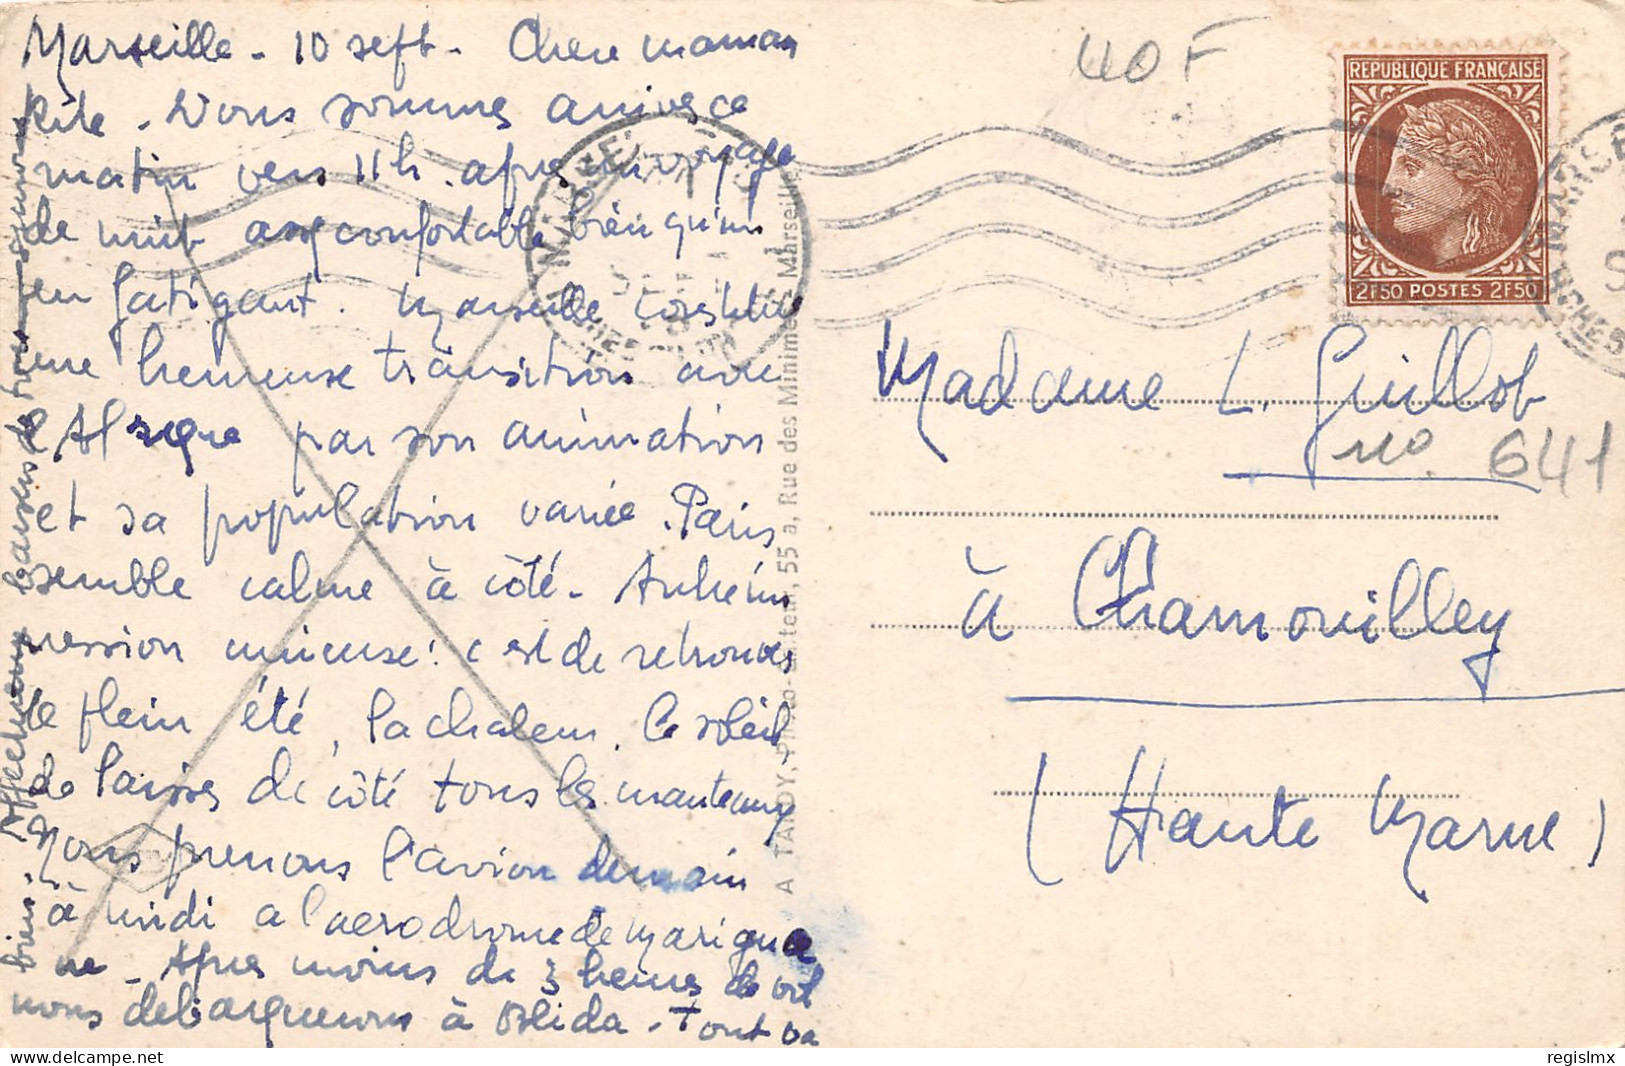 Marseille - 10 sept - Chere maman
Rite. Nous sommes arrivés ce
matin vers 11h. après un voyage
de nuit assez confortable bien qu'un
peu fatigant. Marseille constitue
une heureuse transition avec
l'Afrique par son animation
et sa population variée. Paris
semble calme à côté - Autre im
pression curieuse: c'est de retrouver
le plein été, la chaleur, le soleil
de laisser de côté tous les manteaux
Nous prenons l'avion demain
à midi a l'aérodrome de Marigna
ne - Après moins de 3 heures de vol
nous débarquerons à Blida - Tout va
bien.
Affectueux baisers de tous
40 F
REPUBLIQUE FRANÇAISE
2F50 POSTES 2F50
Madame L. Guillot
no. 641
à Chamouilley
(Haute Marne)
A. TARDY, Photo-Editeur, 55 a, Rue des Minimes - Marseille
MARSEILLE
regislmx
delcampe.net